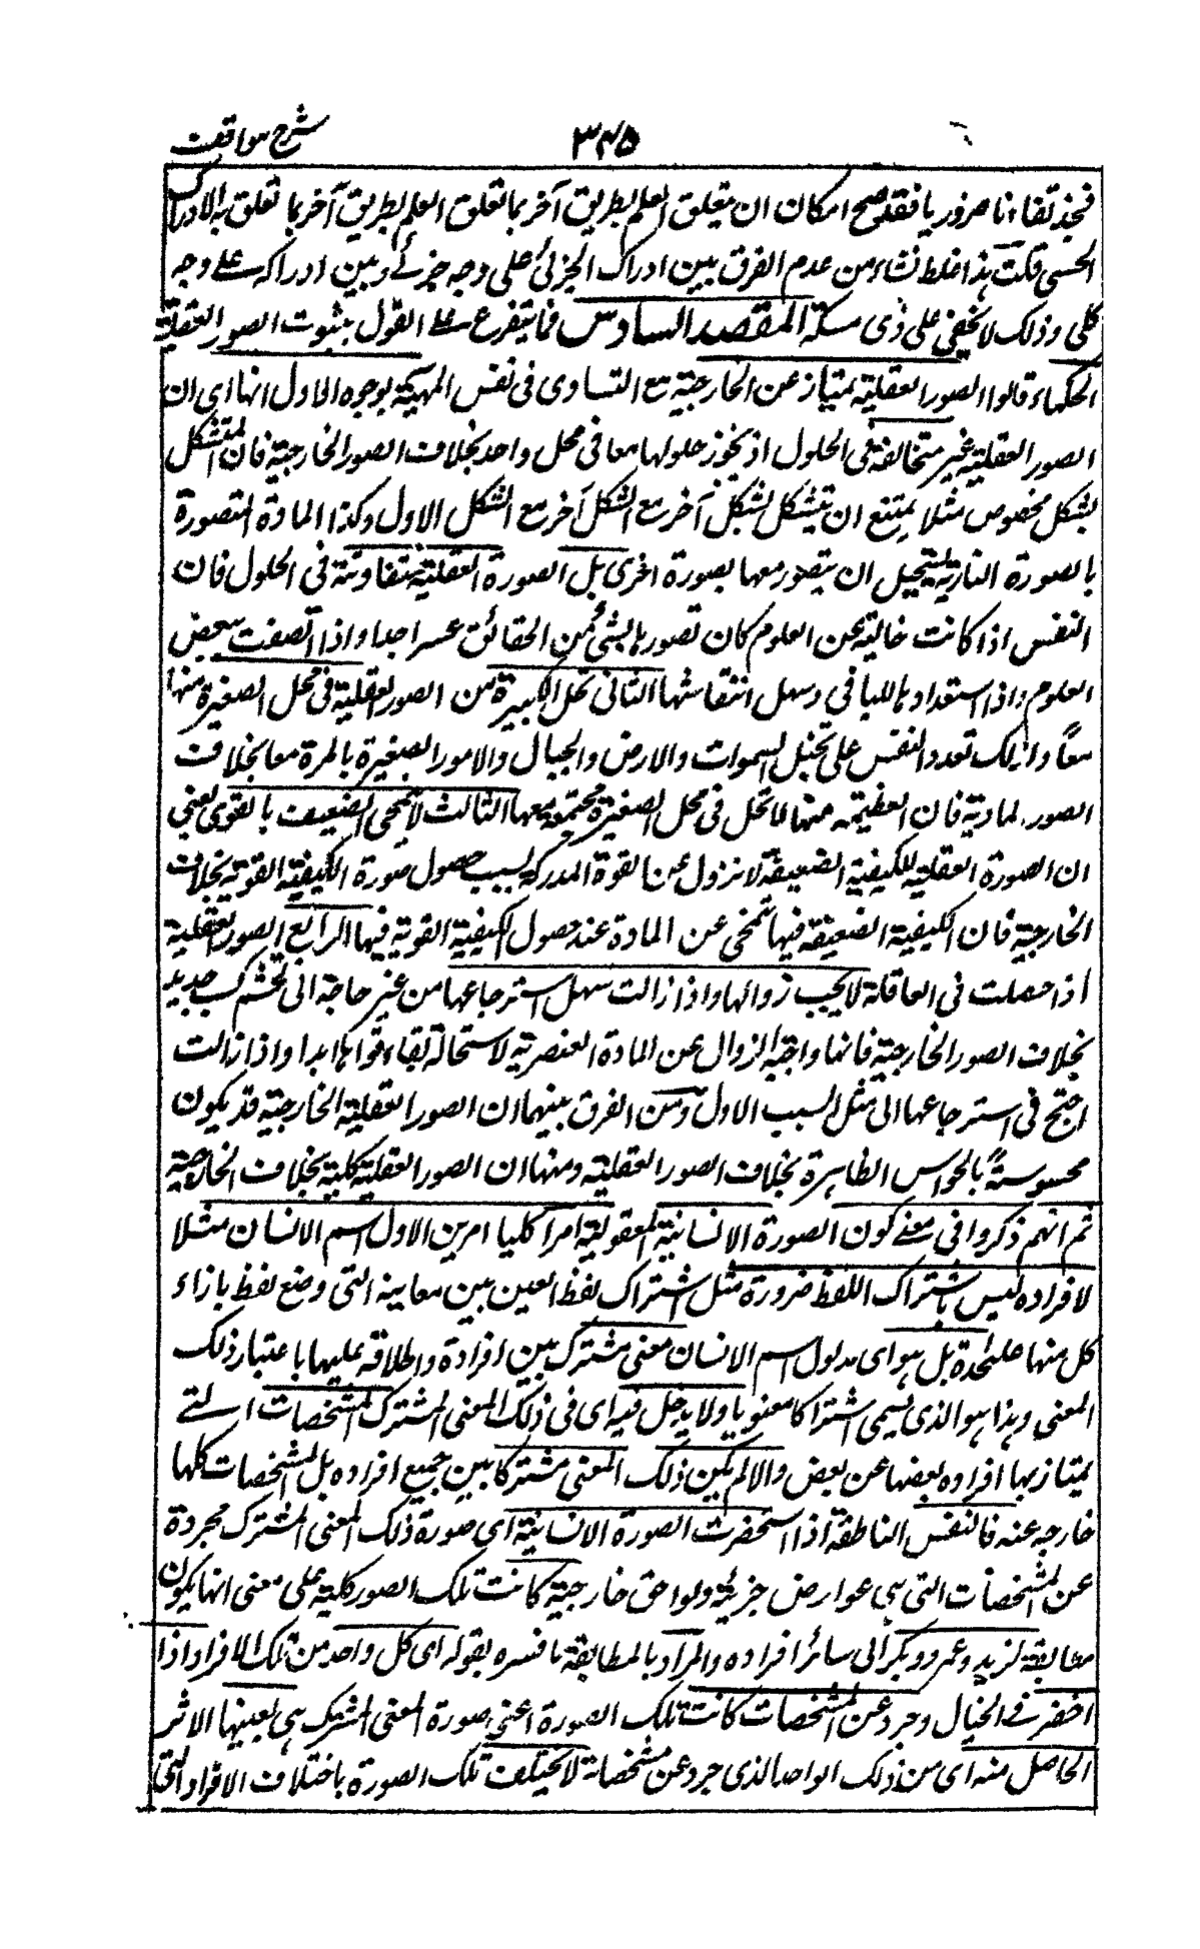 شرح مواقف
٣٤٥
فنجد تفاءنا ضروريا فقد صح امكان ان يتعلق العلم بطريق آخر بما تعلق العلم بطريق آخر بما تعلق به الادراك
الحسي قلت هذا غلط نشاء من عدم الفرق بين ادراك الجزئي على وجه جزئے وبين ادراكه علے وجه
كلي وذلك لا يخفى على ذى مسكة المقصد السادس فما يتفرع علے القول بثبوت الصور العقلية
الحكماء قالوا الصور العقلية تمتاز عن الخارجية مع التساوى فى نفس المهية بوجوه الاول انها اى ان
الصور العقلية غير متخالفة فى الحلول اذ يجوز حلولها معا فى محل واحد بخلاف الصور الخارجية فان المتشكل
بشكل مخصوص مثلا يمتنع ان يتشكل بشكل آخر مع الشكل آخر مع الشكل الاول وكذا المادة المتصورة
بالصورة النارية يستحيل ان يتصور معها بصورة اخرى بل الصورة العقلية متفاوتة فى الحلول فان
النفس اذا كانت خالية عن العلوم كان تصورها بشئ من الحقائق عسرا جدا واذا اتصفت ببعض
العلوم واذا استعدادها للباقى وسهل انتقاشها الثانى تحل الكبيرة من الصور العقلية فى محل الصغيرة منها
معاً ولذلك تعدد النفس على تخيل السموات والارض والجبال والامور الصغيرة بالمرة معا بخلاف
الصور المادية فان العظيمة منها لا تحل فى محل الصغيرة مجتمعة معها الثالث لا تمحى الضعيف بالقوى يعنى
ان الصورة العقلية للكيفية الضعيفة لا تزول عن القوة المدركة بسبب حصول صورة الكيفية القوية بخلاف
الخارجية فان الكيفية الضعيفة فيها تمحى عن المادة عند حصول الكيفية القوية فيها الرابع الصور العقلية
اذا حصلت فى العاقلة لا يجب زوالها واذا زالت سهل استرجاعها من غير حاجة الى تجشم كسب جديد
بخلاف الصور الخارجية فانها واجبة الزوال عن المادة العنصرية لاستحالة بقاء قواها ابدا واذا زالت
احتج فى استرجاعها الى مثل السبب الاول ومن الفرق بينهما ان الصور العقلية الخارجية قد يكون
محسوسة بالحواس الظاهرة بخلاف الصور العقلية ومنها ان الصور العقلية كلية بخلاف الخارجية
ثم انهم ذكروا فى معنے كون الصورة الانسانية المعقولية امرا كليا امرين الاول اسم الانسان مثلا
لافراده ليس باشتراك اللفظ ضرورة مثل اشتراك لفظ العين بين معانيه التى وضع لفظ بازاء
كل منها علىحدة بل هو اى مدلول اسم الانسان معنى مشترك بين افراده واطلاقه عليها باعتبار ذلك
المعنى وهذا هو الذى يسمى اشتراكا معنويا ولا يدخل فيه اى فى ذلك المعنى المشترك المشخصات التے
يمتاز بها افراده بعضها عن بعض والا لم يكن ذلك المعنى مشتركا بين جميع افراده بل المشخصات كلها
خارجه عنه فالنفس الناطقة اذا استحضرت الصورة الانسانية اى صورة ذلك المعنى المشترك مجردة
عن المشخصات التى هى عوارض جزئية ولواحق خارجية كانت تلك الصور كلية على معنى انها يكون
مطابقة لزيد وعمرو وبكر الى سائر افراده والمراد بالمطابقة ما فسره بقوله اى كل واحد من تلك الافراد اذا
احضر فے الخيال وجرد عن المشخصات كانت تلك الصورة اعنى صورة المعنى المشترك هى بعينها الاثر
الحاصل منه اى من ذلك الواحد الذى جرد عن مشخصاته لا يختلف تلك الصورة باختلاف الافراد التى